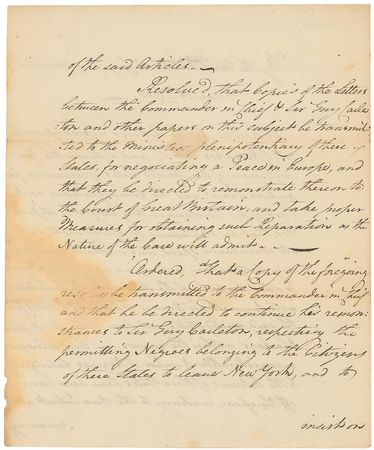 of the said Articles.—
Resolved, that Copies of the Letters
between the Commander in Chief & Sir Guy Carle
:ton and other papers on this subject be transmit:
:ted to the Ministers plenipotentiary of these
States, for negociating a Peace in Europe, and
that they be directed to remonstrate thereon to
the Court of Great Britain, and take proper
Measures for obtaining such Reparation as the
Nature of the Case will admit.—
Ordered, that a Copy of the foregoing
resolve be transmitted to the Commander in Chief
and that he be directed to continue his remon:
:strances to Sir Guy Carleton, respecting the
permitting Negroes belonging to the Citizens
of these States to leave New York, and to
insist on